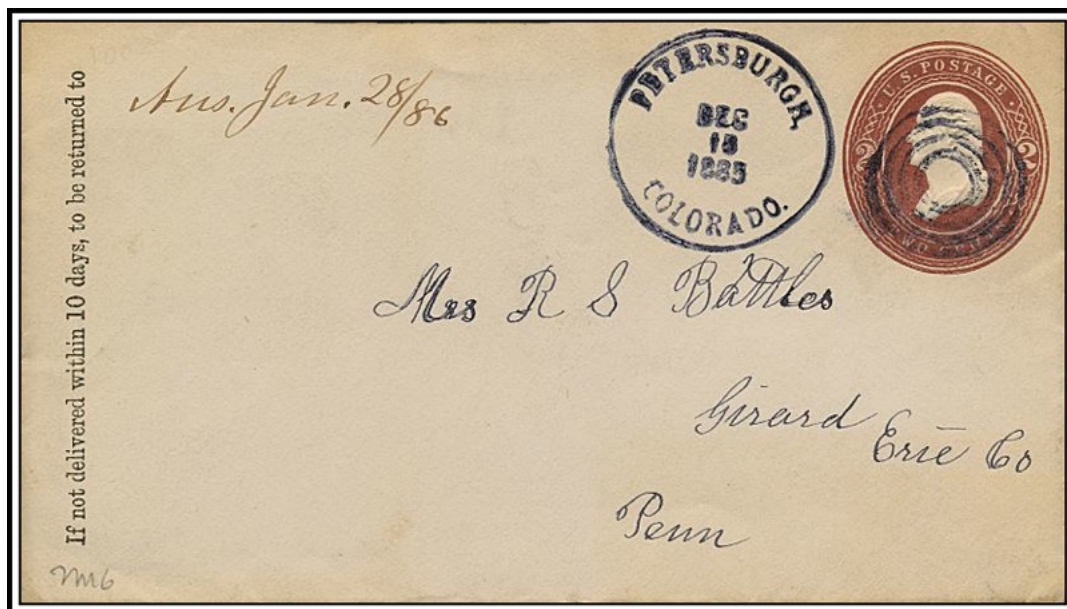 If not delivered within 10 days, to be returned to
Ans. Jan. 28/86
PETERSBURGH,
DEC
1885
COLORADO.
U.S. POSTAGE
2 2
Mrs R S Battles
Girard
Erie Co
Penn